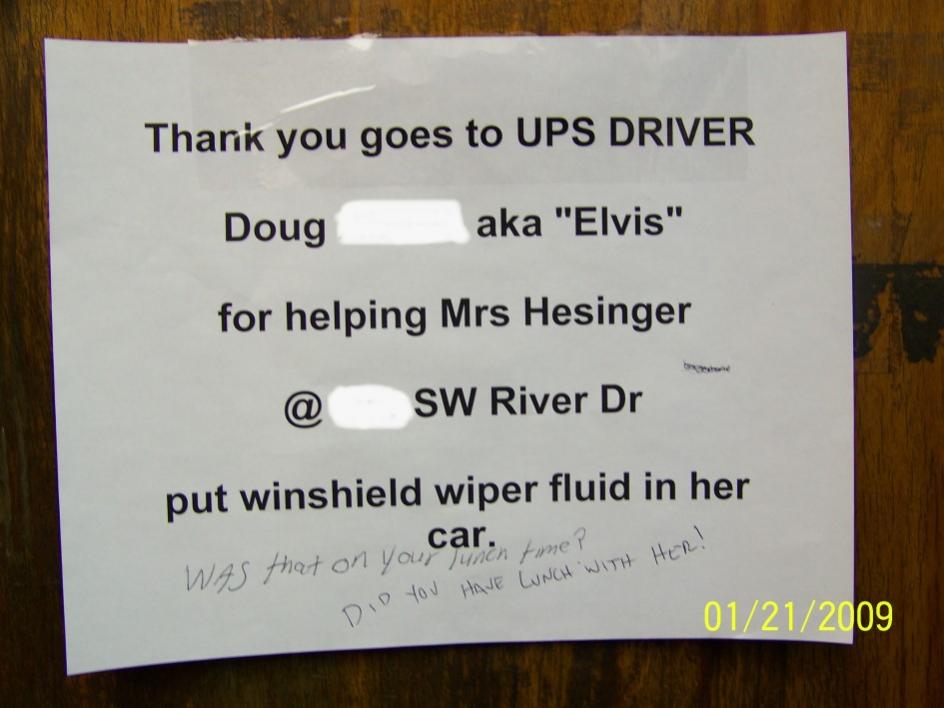 Thank you goes to UPS DRIVER
Doug aka "Elvis"
for helping Mrs Hesinger
@ SW River Dr
put winshield wiper fluid in her
car.
WAS that on your lunch time?
DID YOU HAVE LUNCH WITH HER!
01/21/2009